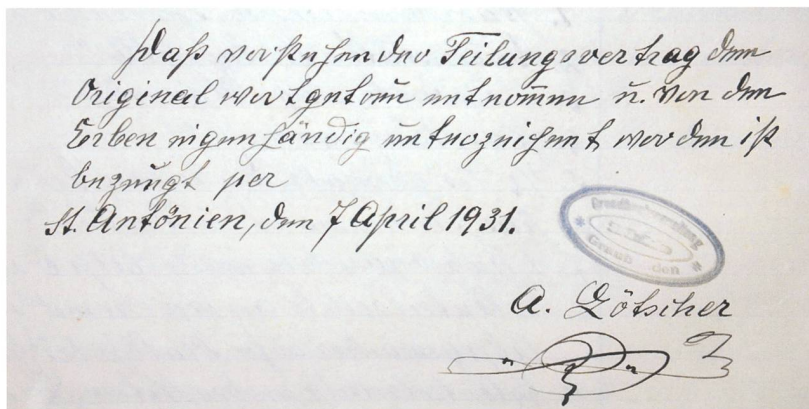 Daß vorstehender Teilungsvertrag dem
Original wortgetreu entnommen u. von den
Erben eigenhändig unterzeichnet worden ist
bezeugt per
St. Antönien, den 7 April 1931.
Grundbuchverwaltung
Graubünden
A. Lötscher